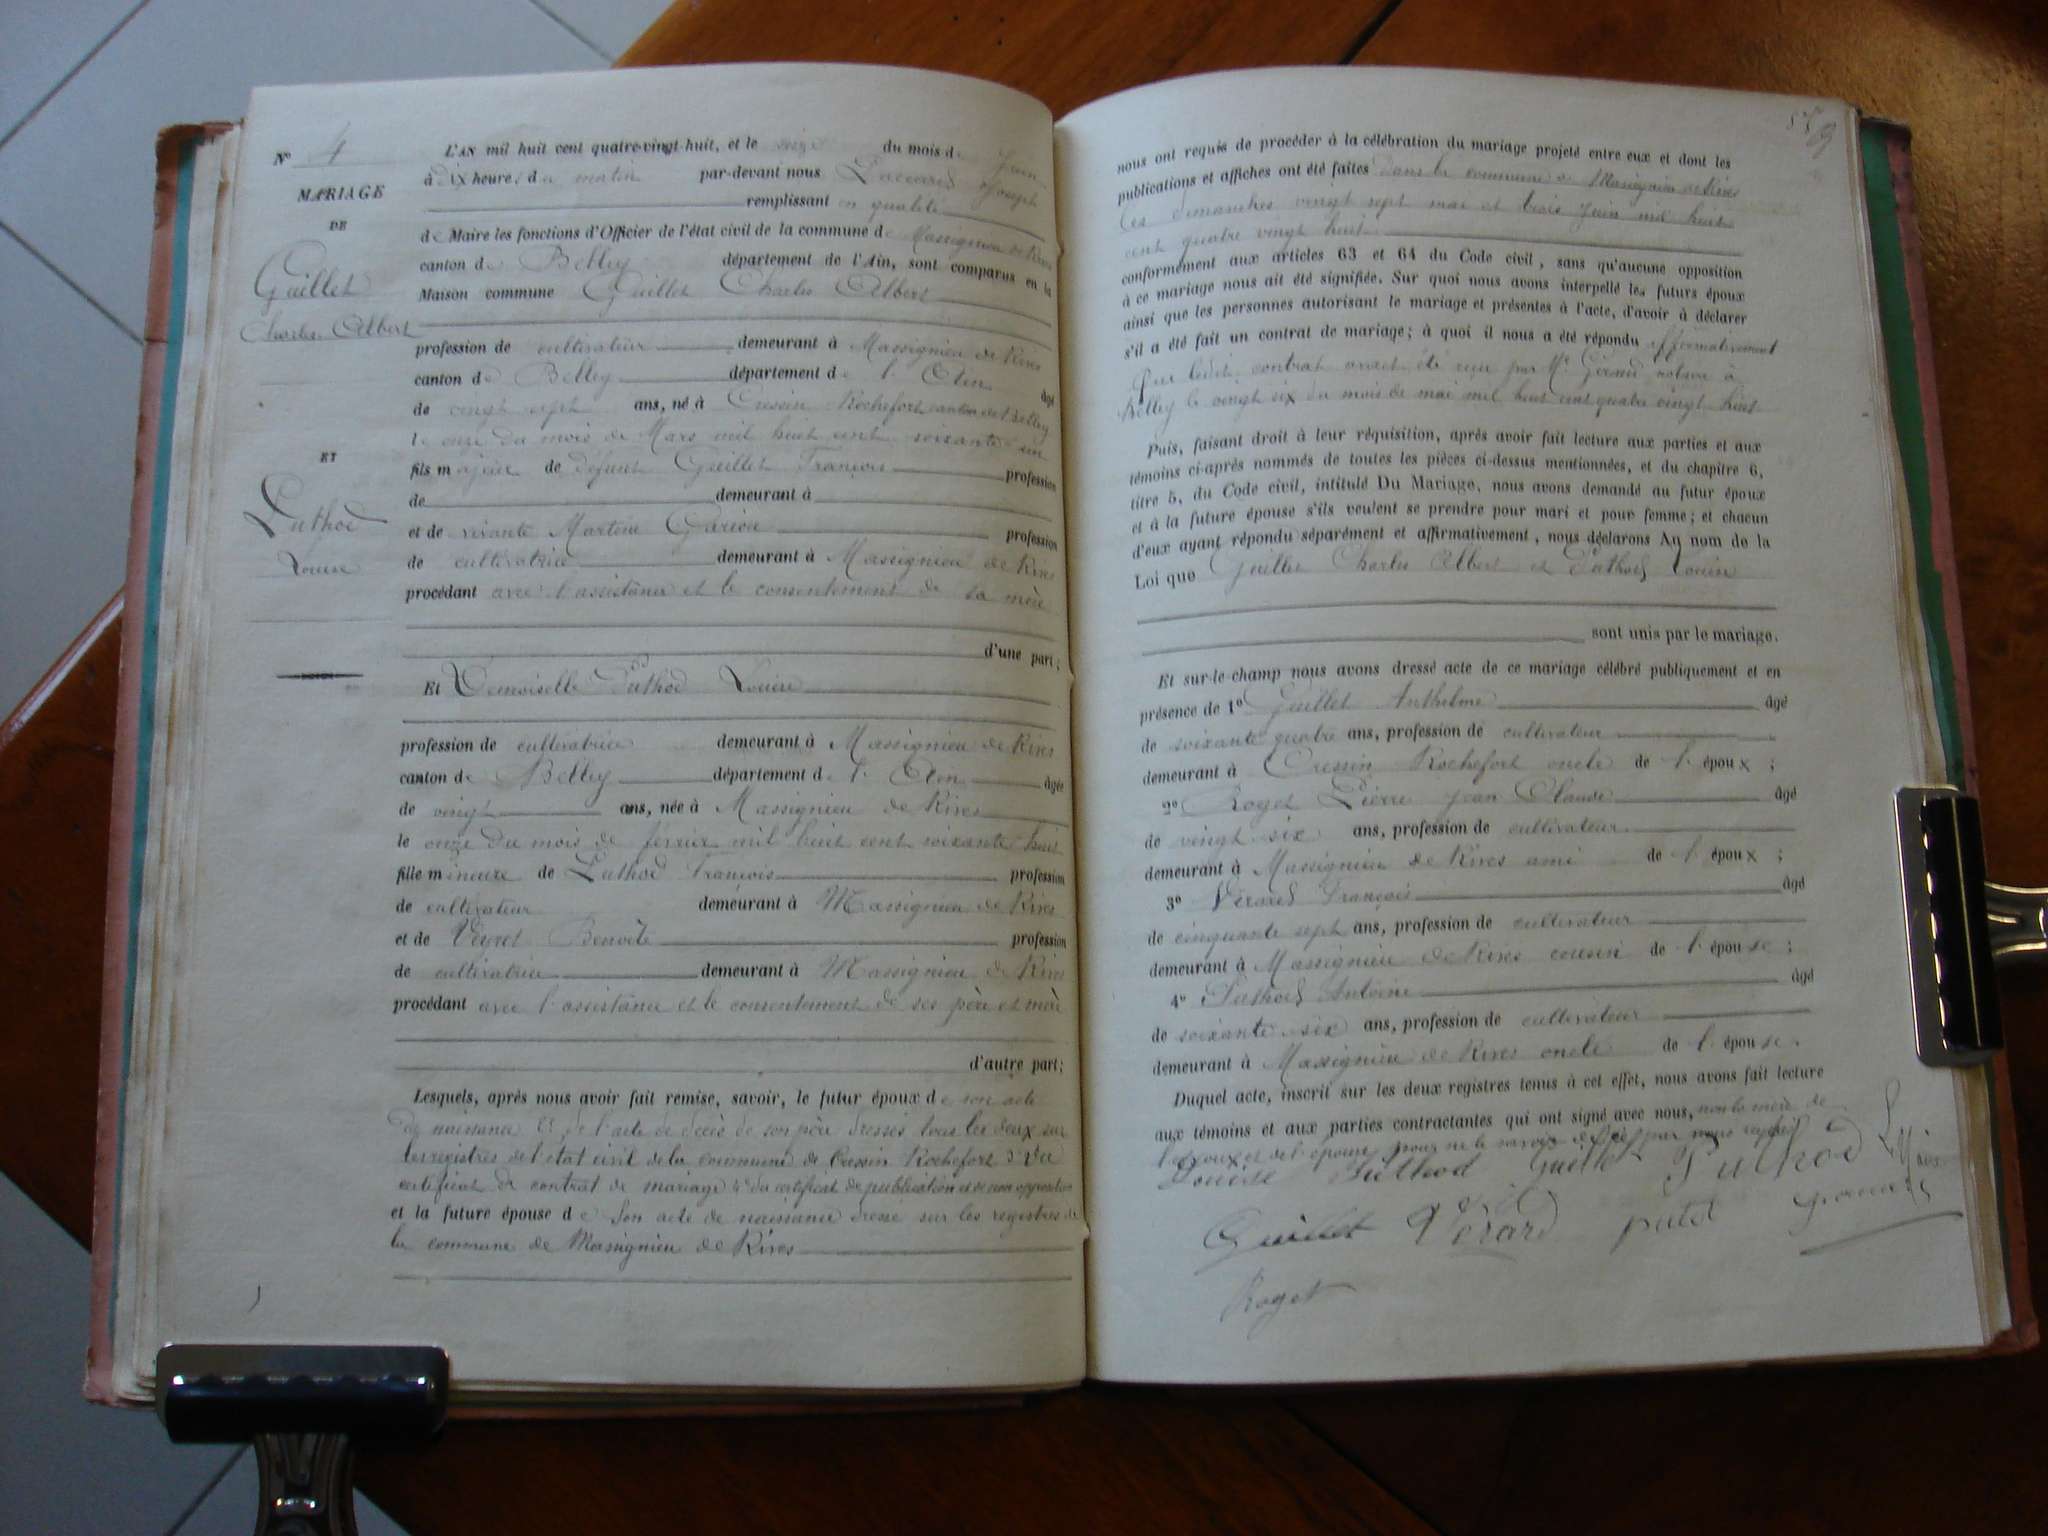 N° 4
MARIAGE
DE
Guillet
Charles Albert
ET
Puthod
Louise
L'AN mil huit cent quatre-vingt-huit, et le seize du mois de Juin
à DIX heures du matin par-devant nous Joseph
remplissant en qualité
de Maire les fonctions d'Officier de l'état civil de la commune de Massignieu de Rives
canton de Belley département de l'Ain, sont comparus en la
Maison commune Guillet Charles Albert
profession de cultivateur demeurant à Massignieu de Rives
canton de Belley département de l'Ain âgé
de vingt sept ans, né à Cressin Rochefort canton de Belley
le onze du mois de Mars mil huit cent soixante un
fils majeur de défunt Guillet François profession
de demeurant à
et de vivante Martine profession
de cultivatrice demeurant à Massignieu de Rives
procédant avec l'assistance et le consentement de sa mère
d'une part;
Et Demoiselle Puthod Louise
profession de cultivatrice demeurant à Massignieu de Rives
canton de Belley département de l'Ain âgée
de vingt ans, née à Massignieu de Rives
le onze du mois de février mil huit cent soixante huit
fille mineure de Puthod François profession
de cultivateur demeurant à Massignieu de Rives
et de Veyret Benoîte profession
de cultivatrice demeurant à Massignieu de Rives
procédant avec l'assistance et le consentement de ses père et mère
d'autre part;
Lesquels, après nous avoir fait remise, savoir, le futur époux de son acte
de naissance 2° de l'acte de décès de son père dressés tous les deux sur
les registres de l'état civil de la commune de Cressin Rochefort 3° du
certificat de contrat de mariage 4° du certificat de publication et de non opposition
et la future épouse de son acte de naissance dressé sur les registres de
la commune de Massignieu de Rives
nous ont requis de procéder à la célébration du mariage projeté entre eux et dont les
publications et affiches ont été faites dans la commune de Massignieu de Rives
les dimanches vingt sept mai et trois juin mil huit
cent quatre vingt huit
conformément aux articles 63 et 64 du Code civil, sans qu'aucune opposition
à ce mariage nous ait été signifiée. Sur quoi nous avons interpellé les futurs époux
ainsi que les personnes autorisant le mariage et présentes à l'acte, d'avoir à déclarer
s'il a été fait un contrat de mariage; à quoi il nous a été répondu affirmativement
que ledit contrat avait été reçu par Me notaire à
Belley le vingt six du mois de mai mil huit cent quatre vingt huit
Puis, faisant droit à leur réquisition, après avoir fait lecture aux parties et aux
témoins ci-après nommés de toutes les pièces ci-dessus mentionnées, et du chapitre 6,
titre 5, du Code civil, intitulé Du Mariage, nous avons demandé au futur époux
et à la future épouse s'ils veulent se prendre pour mari et pour femme; et chacun
d'eux ayant répondu séparément et affirmativement, nous déclarons Au nom de la
Loi que Guillet Charles Albert et Puthod Louise
sont unis par le mariage.
Et sur-le-champ nous avons dressé acte de ce mariage célébré publiquement et en
présence de 1° Guillet Anthelme âgé
de soixante quatre ans, profession de cultivateur
demeurant à Cressin Rochefort oncle de l'époux;
2° Roget Pierre Jean Claude âgé
de vingt six ans, profession de cultivateur
demeurant à Massignieu de Rives ami de l'époux;
3° Vérard François âgé
de cinquante sept ans, profession de cultivateur
demeurant à Massignieu de Rives cousin de l'épouse;
4° Puthod Antoine âgé
de soixante six ans, profession de cultivateur
demeurant à Massignieu de Rives oncle de l'épouse.
Duquel acte, inscrit sur les deux registres tenus à cet effet, nous avons fait lecture
aux témoins et aux parties contractantes qui ont signé avec nous, non la mère de
l'époux et de l'épouse pour ne le savoir de ce par nous requis
Louise Puthod Guillet Puthod
Guillet Vérard
Roget